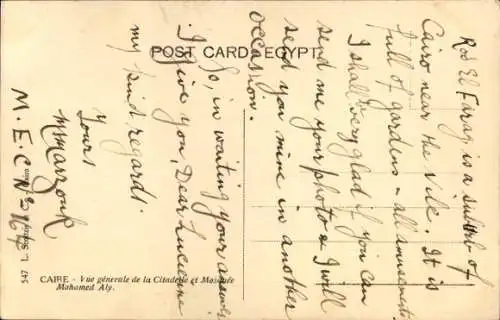 POST CARD EGYPT
Rod El Farag is a suburb of
Cairo near the Nile. It is
full of gardens - all amusements
I shall be very glad if you can
send me your photo & I will
send you mine in another
occasion.
So, in waiting your
I give you, Dear Lucienne
my kind regards.
Yours
MMarzouk
M. E. C No 167
CAIRE - Vue générale de la Citadelle et Mosquée
Mohamed Aly.
547